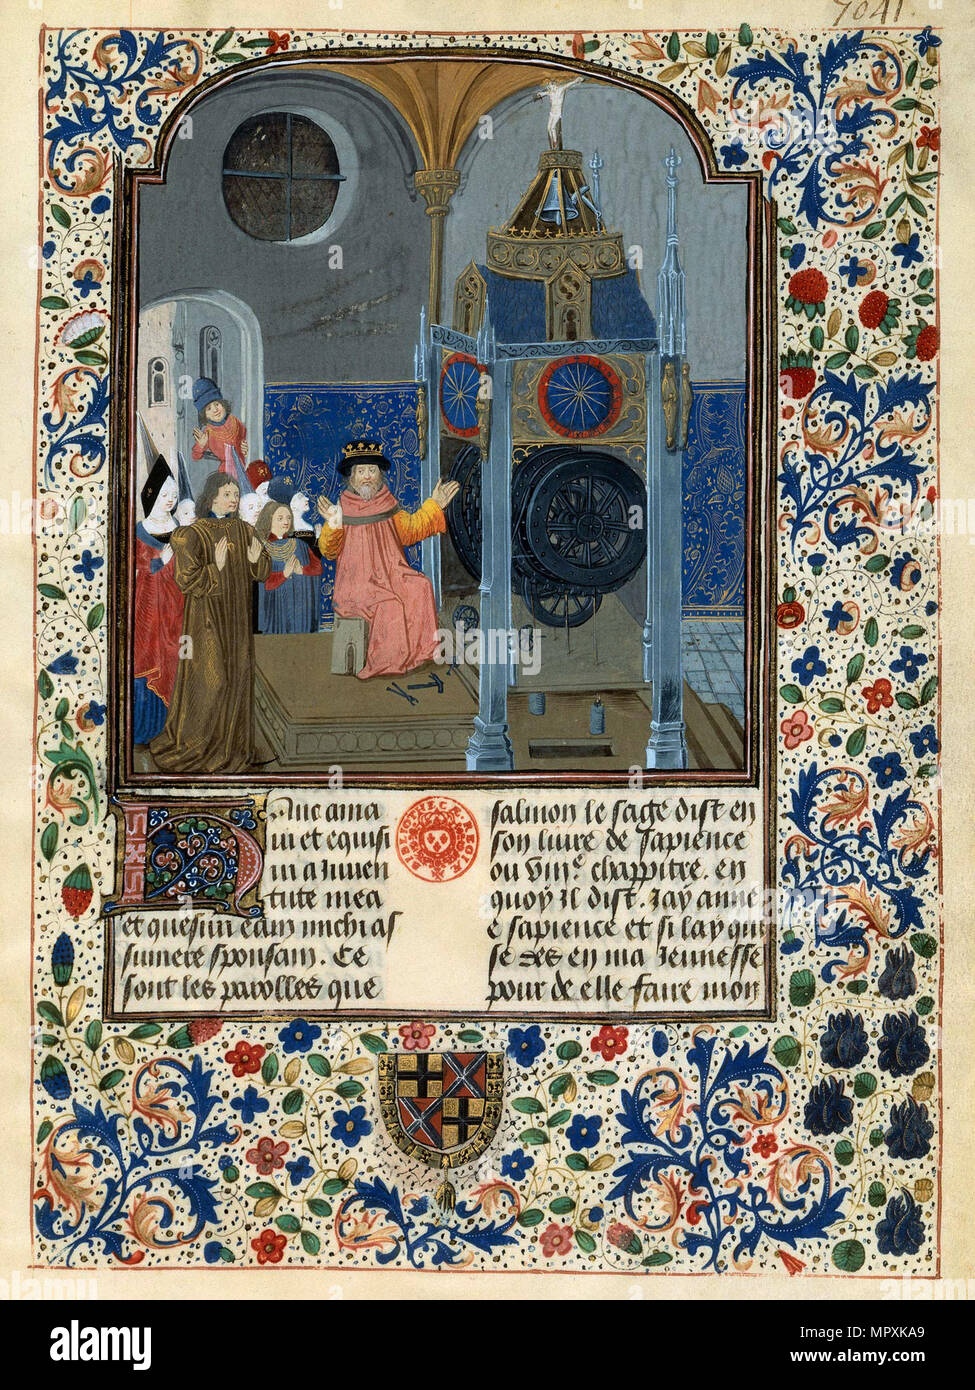 7041.
Hanc ama
ui et equisi
ui a Juuen
tute mea
et quesiui eam michi as
sumere sponsam. Ce
sont les parolles que
salmon le sage dist en
son liure de sapience
ou viii.e chappitre. en
quoy Il dist. Jay ame
e sapience et si lay qui
se des en ma Jeunesse
pour de elle faire mon
alamy
Image ID: MPXKA9
www.alamy.com